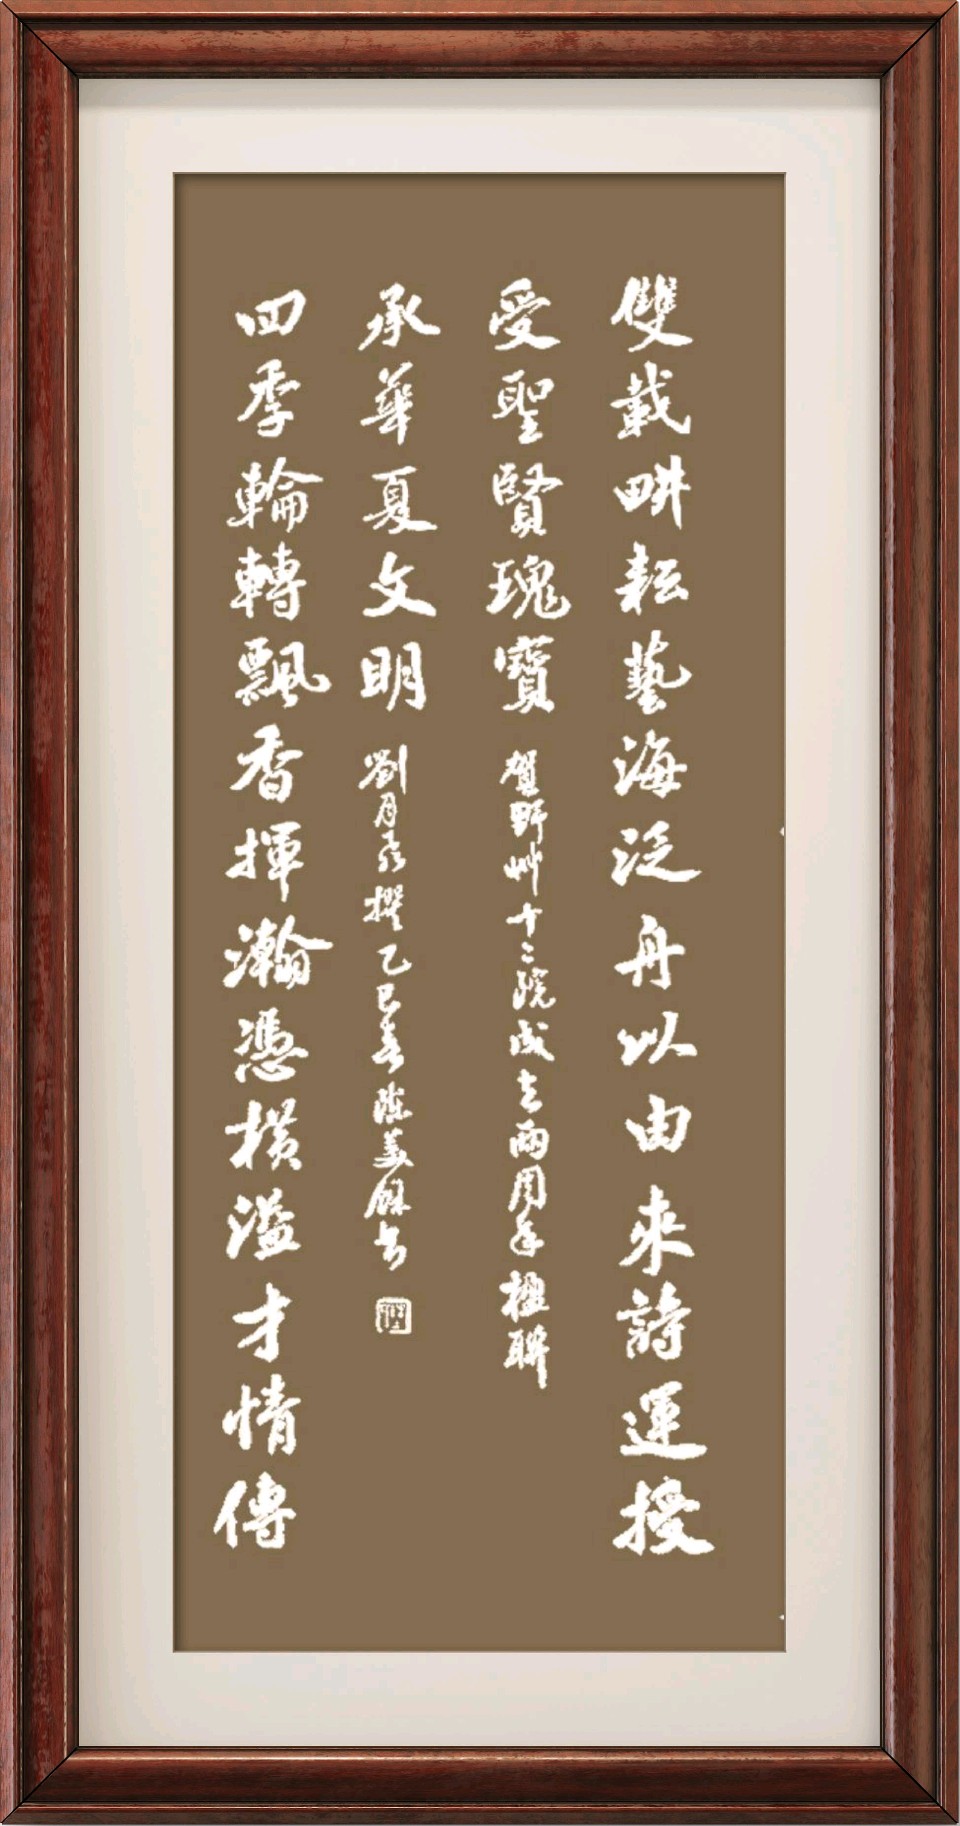 雙載畊耘藝海泛舟以由來詩運授
受聖賢瑰寶
賀野艸十二院成立兩周年楹聯
四季輪轉飄香揮瀚憑橫溢才情傳
承華夏文明
劉月撰乙巳春陳美書